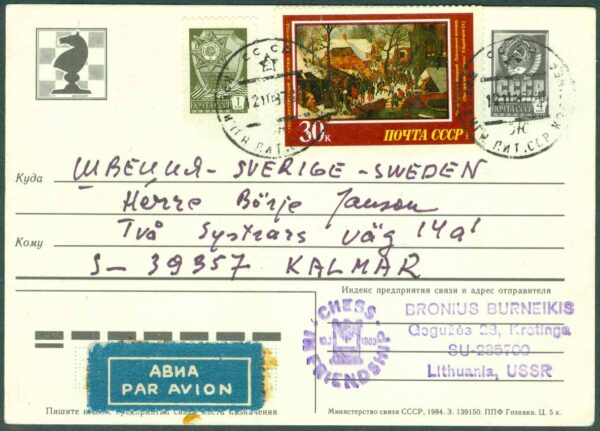 ПОЧТА СССР 1К
30к ПОЧТА СССР
СССР
ПОЧТА СССР
Куда ШВЕЦИЯ - SVERIGE - SWEDEN
Herre Börje Janson
Кому Två Systrars väg 14a
S-39357 KALMAR
Индекс предприятия связи и адрес отправителя
CHESS
IM
FRIENDSHIP
1983
BRONIUS BURNEIKIS
Gegužės 23, Kretinga
SU-235700
Lithuania, USSR
АВИА
PAR AVION
Пишите индекс предприятия связи места назначения
Министерство связи СССР, 1984. З. 139150. ППФ Гознака. Ц. 5 к.